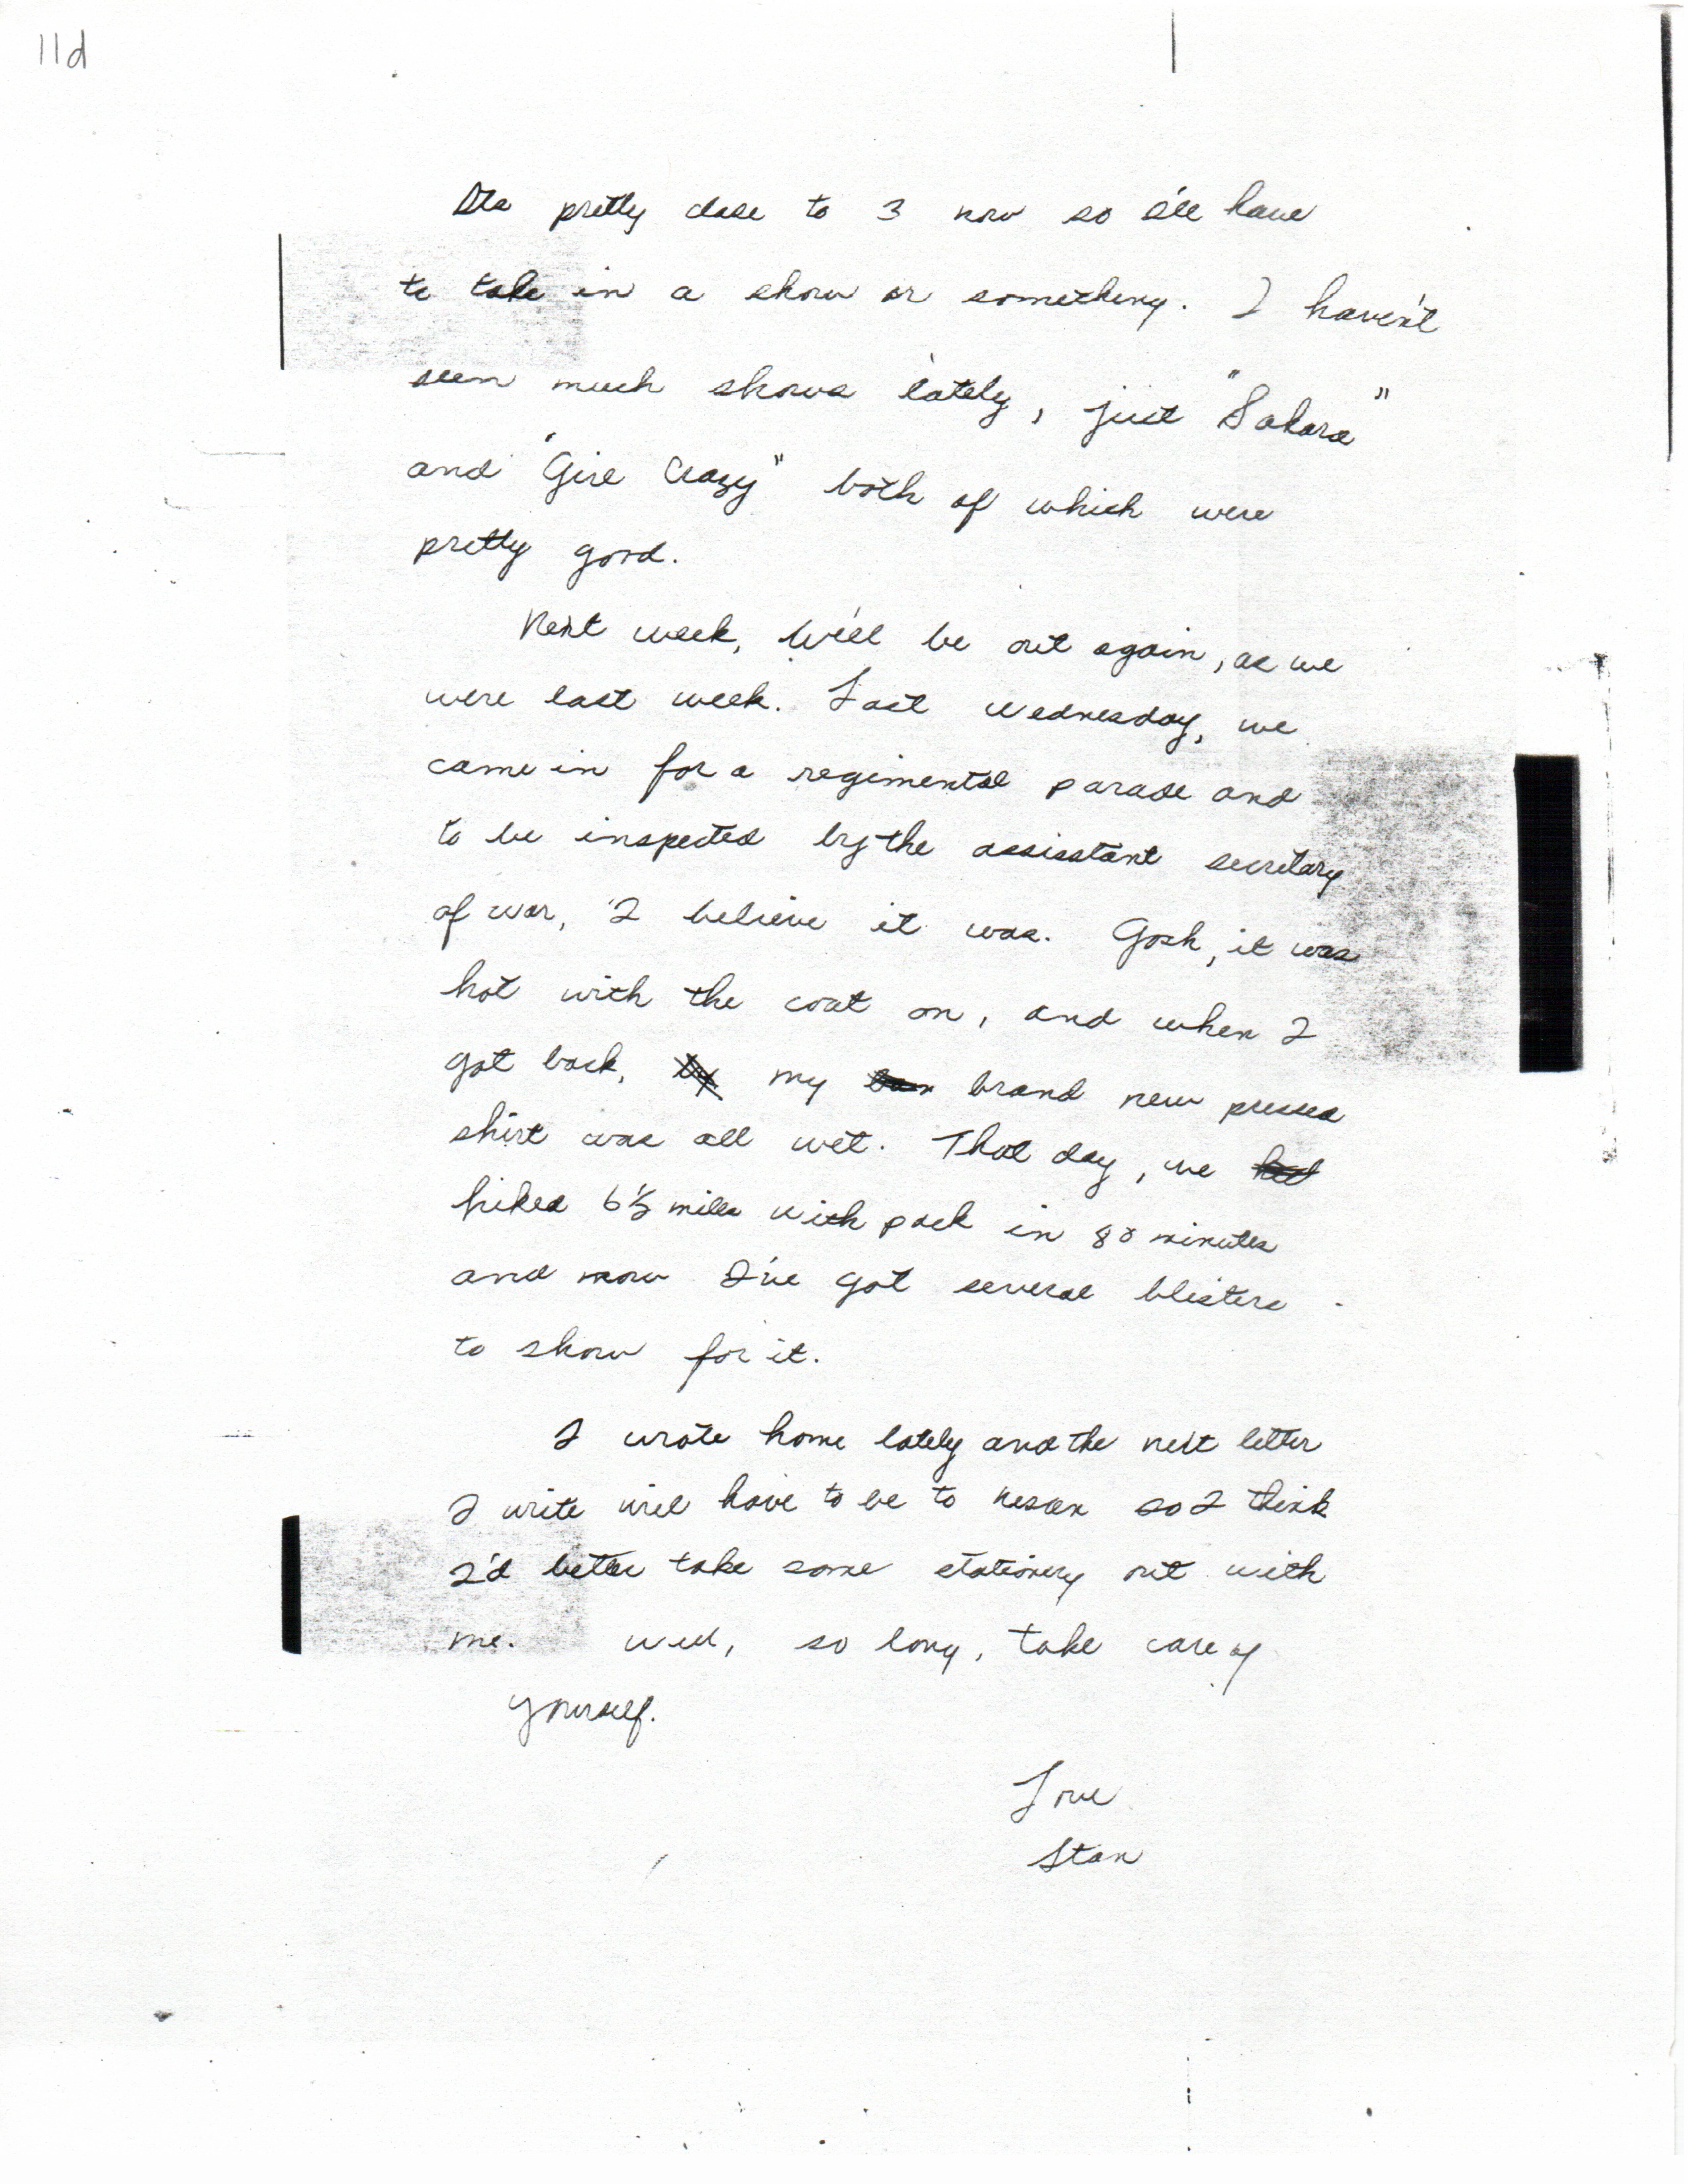 11d
Its pretty close to 3 now so I'll have
to take in a show or something. I haven't
seen much shows lately, just "Sahara"
and "Girl Crazy" both of which were
pretty good.
Next week, We'll be out again, as we
were last week. Last Wednesday, we
came in for a regimental parade and
to be inspected by the assisstant secretary
of war, I believe it was. Gosh, it was
hot with the coat on, and when I
got back, my brand new pressed
shirt was all wet. That day, we
hiked 6½ miles with pack in 80 minutes
and now I've got several blisters
to show for it.
I wrote home lately and the next letter
I write will have to be to so I think
I'd better take some stationery out with
me. Well, so long, take care of
yourself.
Love
Stan